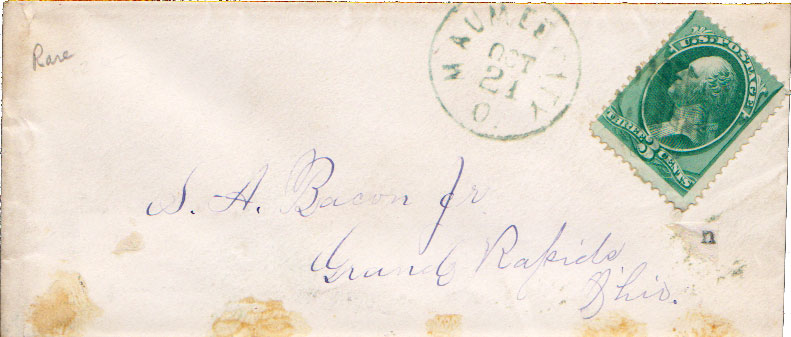 Rare
MAUMEE CITY
OCT
21
O.
U.S. POSTAGE
THREE 3 CENTS
S. H. Bacon Jr.
Grand Rapids
Ohio.
n